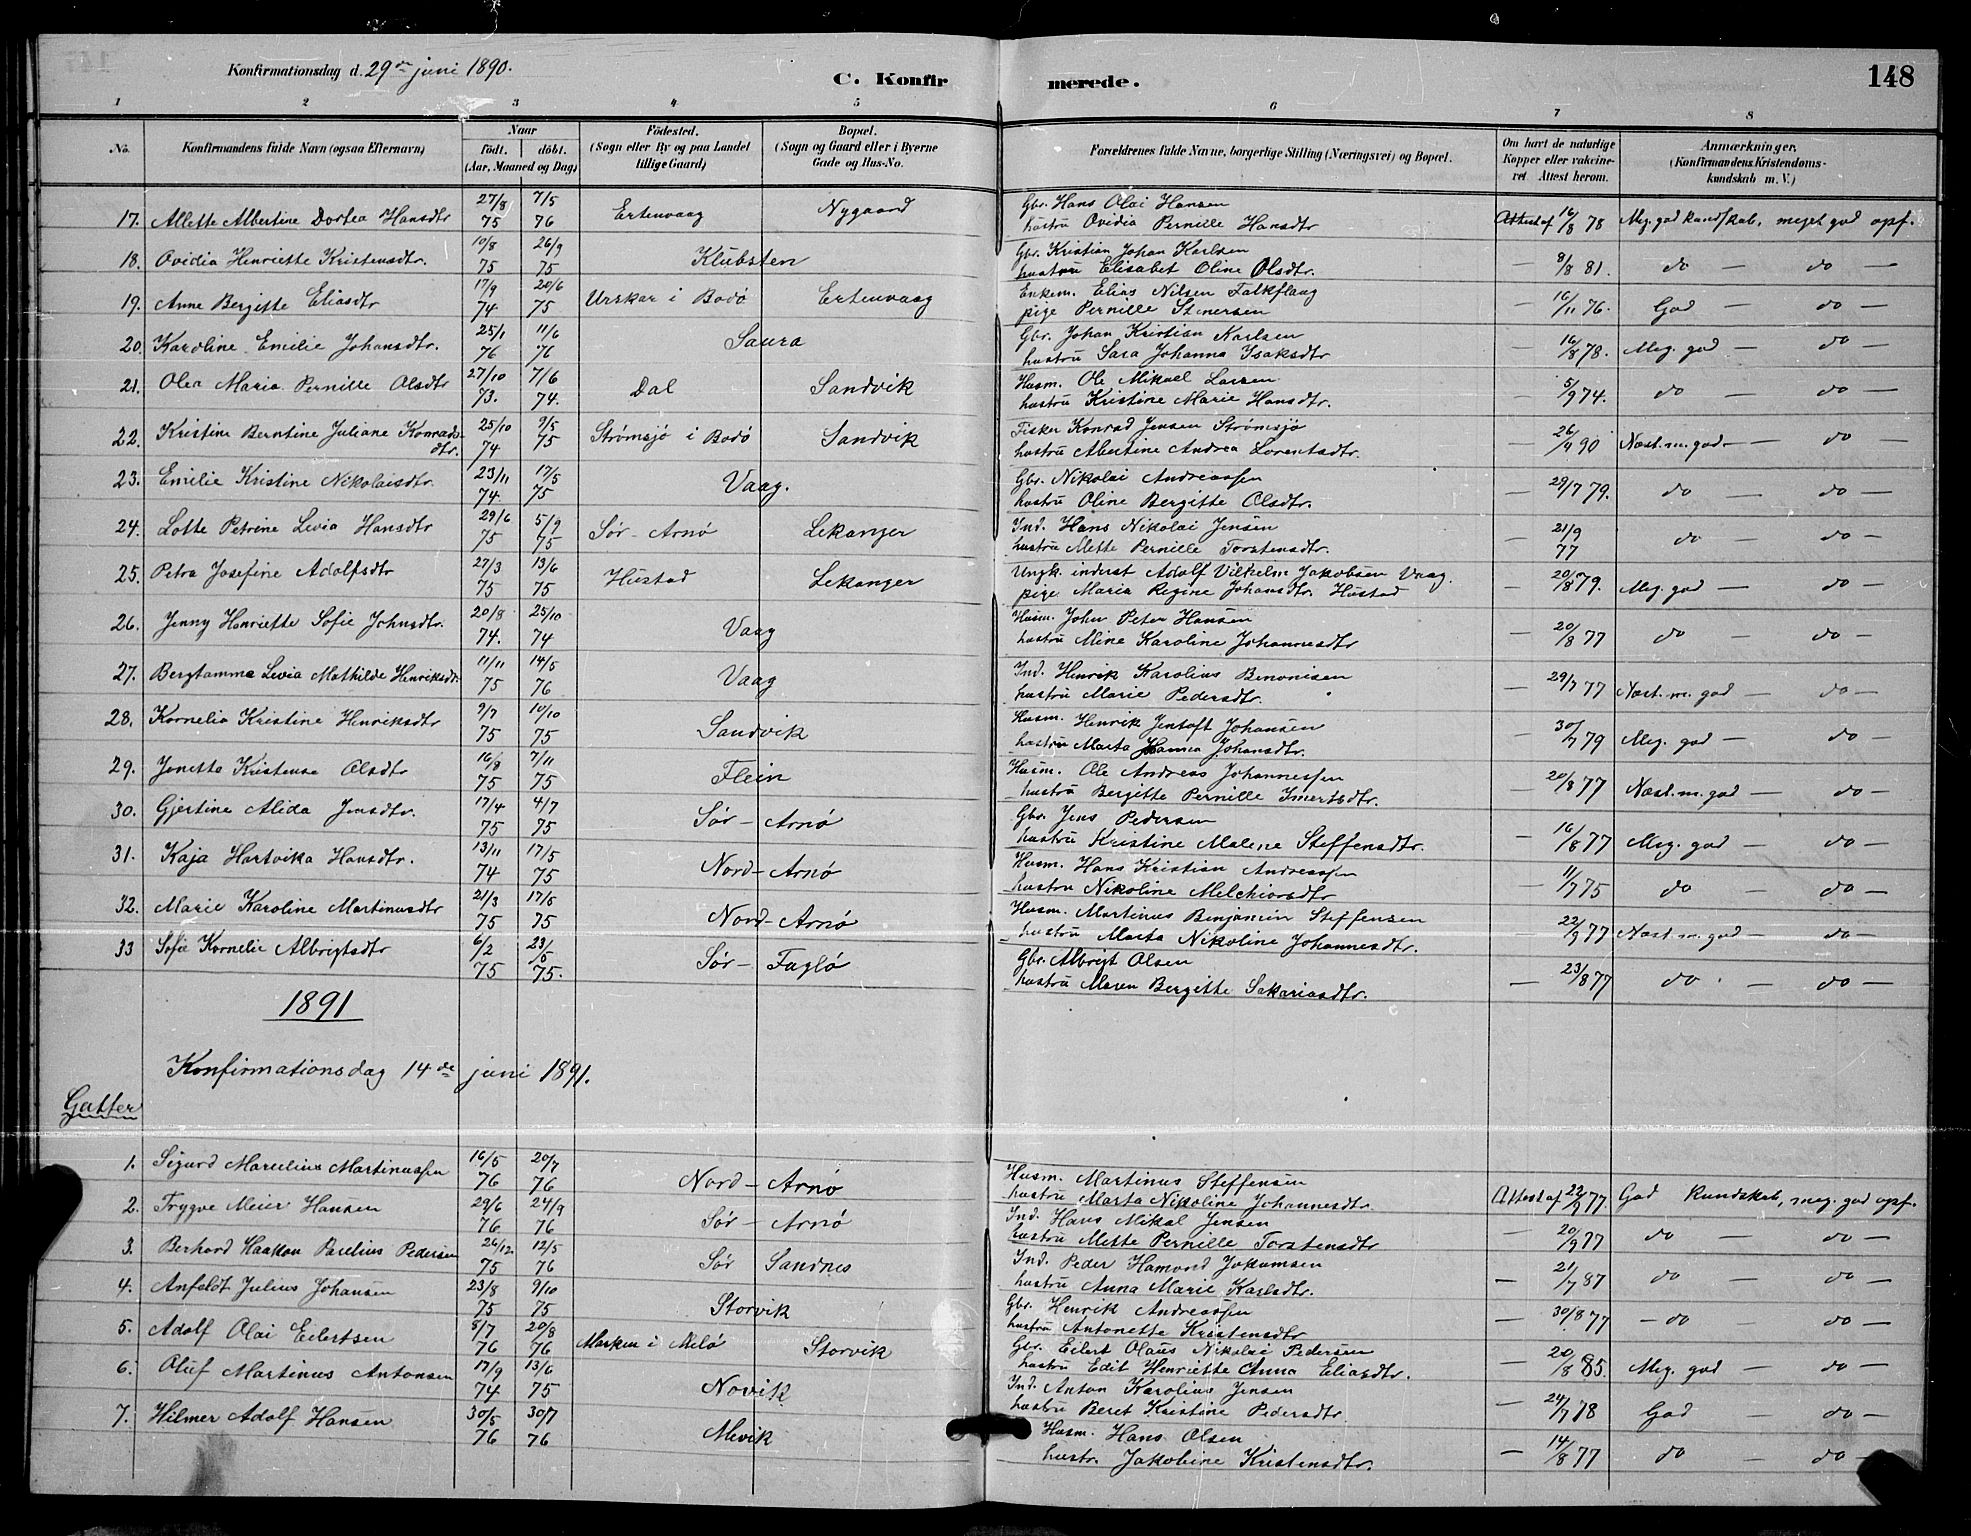 148
Konfirmationsdag d. 29de juni 1890.
C. Konfirmerede.
1 2 3 4 5 6 7 8
No. Konfirmandens fulde Navn (ogsaa Efternavn) Naar födt. döbt. (Aar, Maaned og Dag) Födested. (Sogn eller By og paa Landet tillige Gaard) Bopæl. (Sogn og Gaard eller i Byerne Gade og Hus-No.) Forældrenes fulde Navne, borgerlige Stilling (Næringsvei) og Bopæl. Om havt de naturlige Kopper eller vakcineret Attest herom. Anmærkninger. (Konfirmandens Kristendomskundskab m. V.)
17. Allette Albertine Dortea Hansdtr 27/8 75 7/5 76 Ertenvaag Nygaard Gbr. Hans Olai Hansen Attest af 16/8 78 Meg. god kundskab, meget god opf.
hustru Ovidia Pernille Hansdtr
18. Ovidia Henriette Kristensdtr. 10/8 75 26/9 75 Klubsten Gbr. Kristian Johan Karlsen — 8/8 81. do — do —
hustru Elisabet Oline Olsdtr.
19. Anne Bergitte Eliasdtr 17/9 74 20/6 75 Urskar i Bodö Ertenvaag Enkem. Elias Nilsen Falkflaag — 16/11 76. God — do —
pige Pernille Stenersen
20. Karoline Emilie Johansdtr. 25/1 76 11/6 76 Saura Gbr. Johan Kristian Karlsen — 16/8 78. Meg. god — do —
hustru Sara Johanna Isaksdtr
21. Olea Maria Pernille Olsdtr 27/10 73. 7/6 74. Dal Sandvik Husm. Ole Mikael Larsen — 5/9 74. do — do —
hustru Kristine Marie Hansdtr.
22. Kristine Berntine Juliane Konradsdtr. 25/10 74 9/5 75 Strømsjø i Bodö Sandvik Fisker Konrad Jensen Strømsjø — 26/9 90 Næst. m. god — do —
hustru Albertine Andrea Lorentsdtr.
23. Emilie Kristine Nikolaisdtr. 23/11 74. 17/5 75 Vaag. Gbr. Nikolai Andreassen — 29/7 79. do — do —
hustru Oline Bergitte Olsdtr.
24. Lotte Petrine Levia Hansdtr 29/6 75 5/9 75 Sør-Arnø Lekanger Ind. Hans Nikolai Jensen — 21/9 77 do — do —
hustru Mette Pernille Torstensdtr.
25. Petra Josefine Adolfsdtr 27/3 75 13/6 75 Hustad Lekanger Ungk. inderst Adolf Vilhelm Jakobsen Vaag. — 20/8 79. Meg. god — do —
pige Maria Regine Johansdtr. Hustad
26. Jenny Henriette Sofie Johnsdtr. 20/8 74. 25/10 74 Vaag Husm. John Peter Hansen — 20/8 77 do — do —
hustru Mine Karoline Johannesdtr
27. Bergtamma Levia Mathilde Henriksdtr 11/11 75 14/5 76 Vaag Ind. Henrik Karolius Benonisen — 29/7 77 Næst. m. god — do —
hustru Marie Pedersdtr.
28. Kornelia Kristine Henriksdtr 9/7 75 10/10 75 Sandvik Husm. Henrik Jentoft Johansen — 30/7 79 Meg. god — do —
hustru Marta Hanna Johansdtr.
29. Jonetta Kristense Olsdtr 16/8 75 7/11 75 Flein Husm. Ole Andreas Johannessen — 20/8 77 Næst. m. god — do —
hustru Bergitte Pernille Imertsdtr.
30. Gjertine Alida Jensdtr. 17/4 75 4/7 75 Sør-Arnø Gbr. Jens Pedersen — 16/8 77 Meg. god — do —
hustru Kristine Malene Steffensdtr.
31. Kaja Hartvika Hansdtr. 13/11 74 17/5 75 Nord-Arnø Husm. Hans Kristian Andreassen — 11/7 75 do — do —
hustru Nikoline Melchiorsdtr
32. Marie Karoline Martinusdtr 21/3 75 17/5 75 Nord-Arnø Husm. Martinus Benjamin Steffensen — 22/9 77 Næst. m. god — do —
hustru Marta Nikoline Johannesdtr.
33 Sofie Kornelie Albrigtsdtr 6/2 75 23/5 75. Sør-Fuglø Gbr. Albrigt Olsen — 23/8 77 do — do —
hustru Maren Bergitte Sakariasdtr.
1891
Konfirmationsdag 14de juni 1891.
Gutter
1. Sigurd Marelius Martinussen 16/5 76 20/7 76 Nord-Arnø Husm. Martinus Steffensen Attest af 22/9 77. God Kundskab, meg. god opf.
hustru Marta Nikoline Johannesdtr.
2. Trygve Meier Hansen 29/6 76 24/9 76 Sør-Arnø Ind. Hans Mikal Jensen — 20/9 77 do — do —
hustru Mette Pernille Torstensdtr
3. Berhard Haakon Parelius Pedersen 26/12. 75 12/5 76 Sør Sandnes Ind. Peder Hamond Jokumsen — 21/7 87 do — do —
hustru Anna Marie Karlsdtr.
4. Anfeldt Julius Johansen 23/8 75 9/10 75 Storvik Gbr. Henrik Andreassen — 30/8 77 — do — do —
hustru Antonette Kristensdtr
5. Adolf Olai Eilertsen 8/7 76 20/8 76 Marken i Melø Storvik Gbr. Eilert Olaus Nikolai Pedersen — 20/8 85. Meg. god — do —
hustru Edit Henriette Anna Eliasdtr.
6. Oluf Martinus Antonsen 17/9 74 13/6 75 Novik Ind. Anton Karolius Jensen — 24/7 78 God — do —
hustru Beret Kristine Pedersdtr.
7. Hilmer Adolf Hansen 30/5 76 30/7 76 Mevik Husm. Hans Olsen — 14/8 77 do — do —
hustr. Jakobine Kristensdtr.